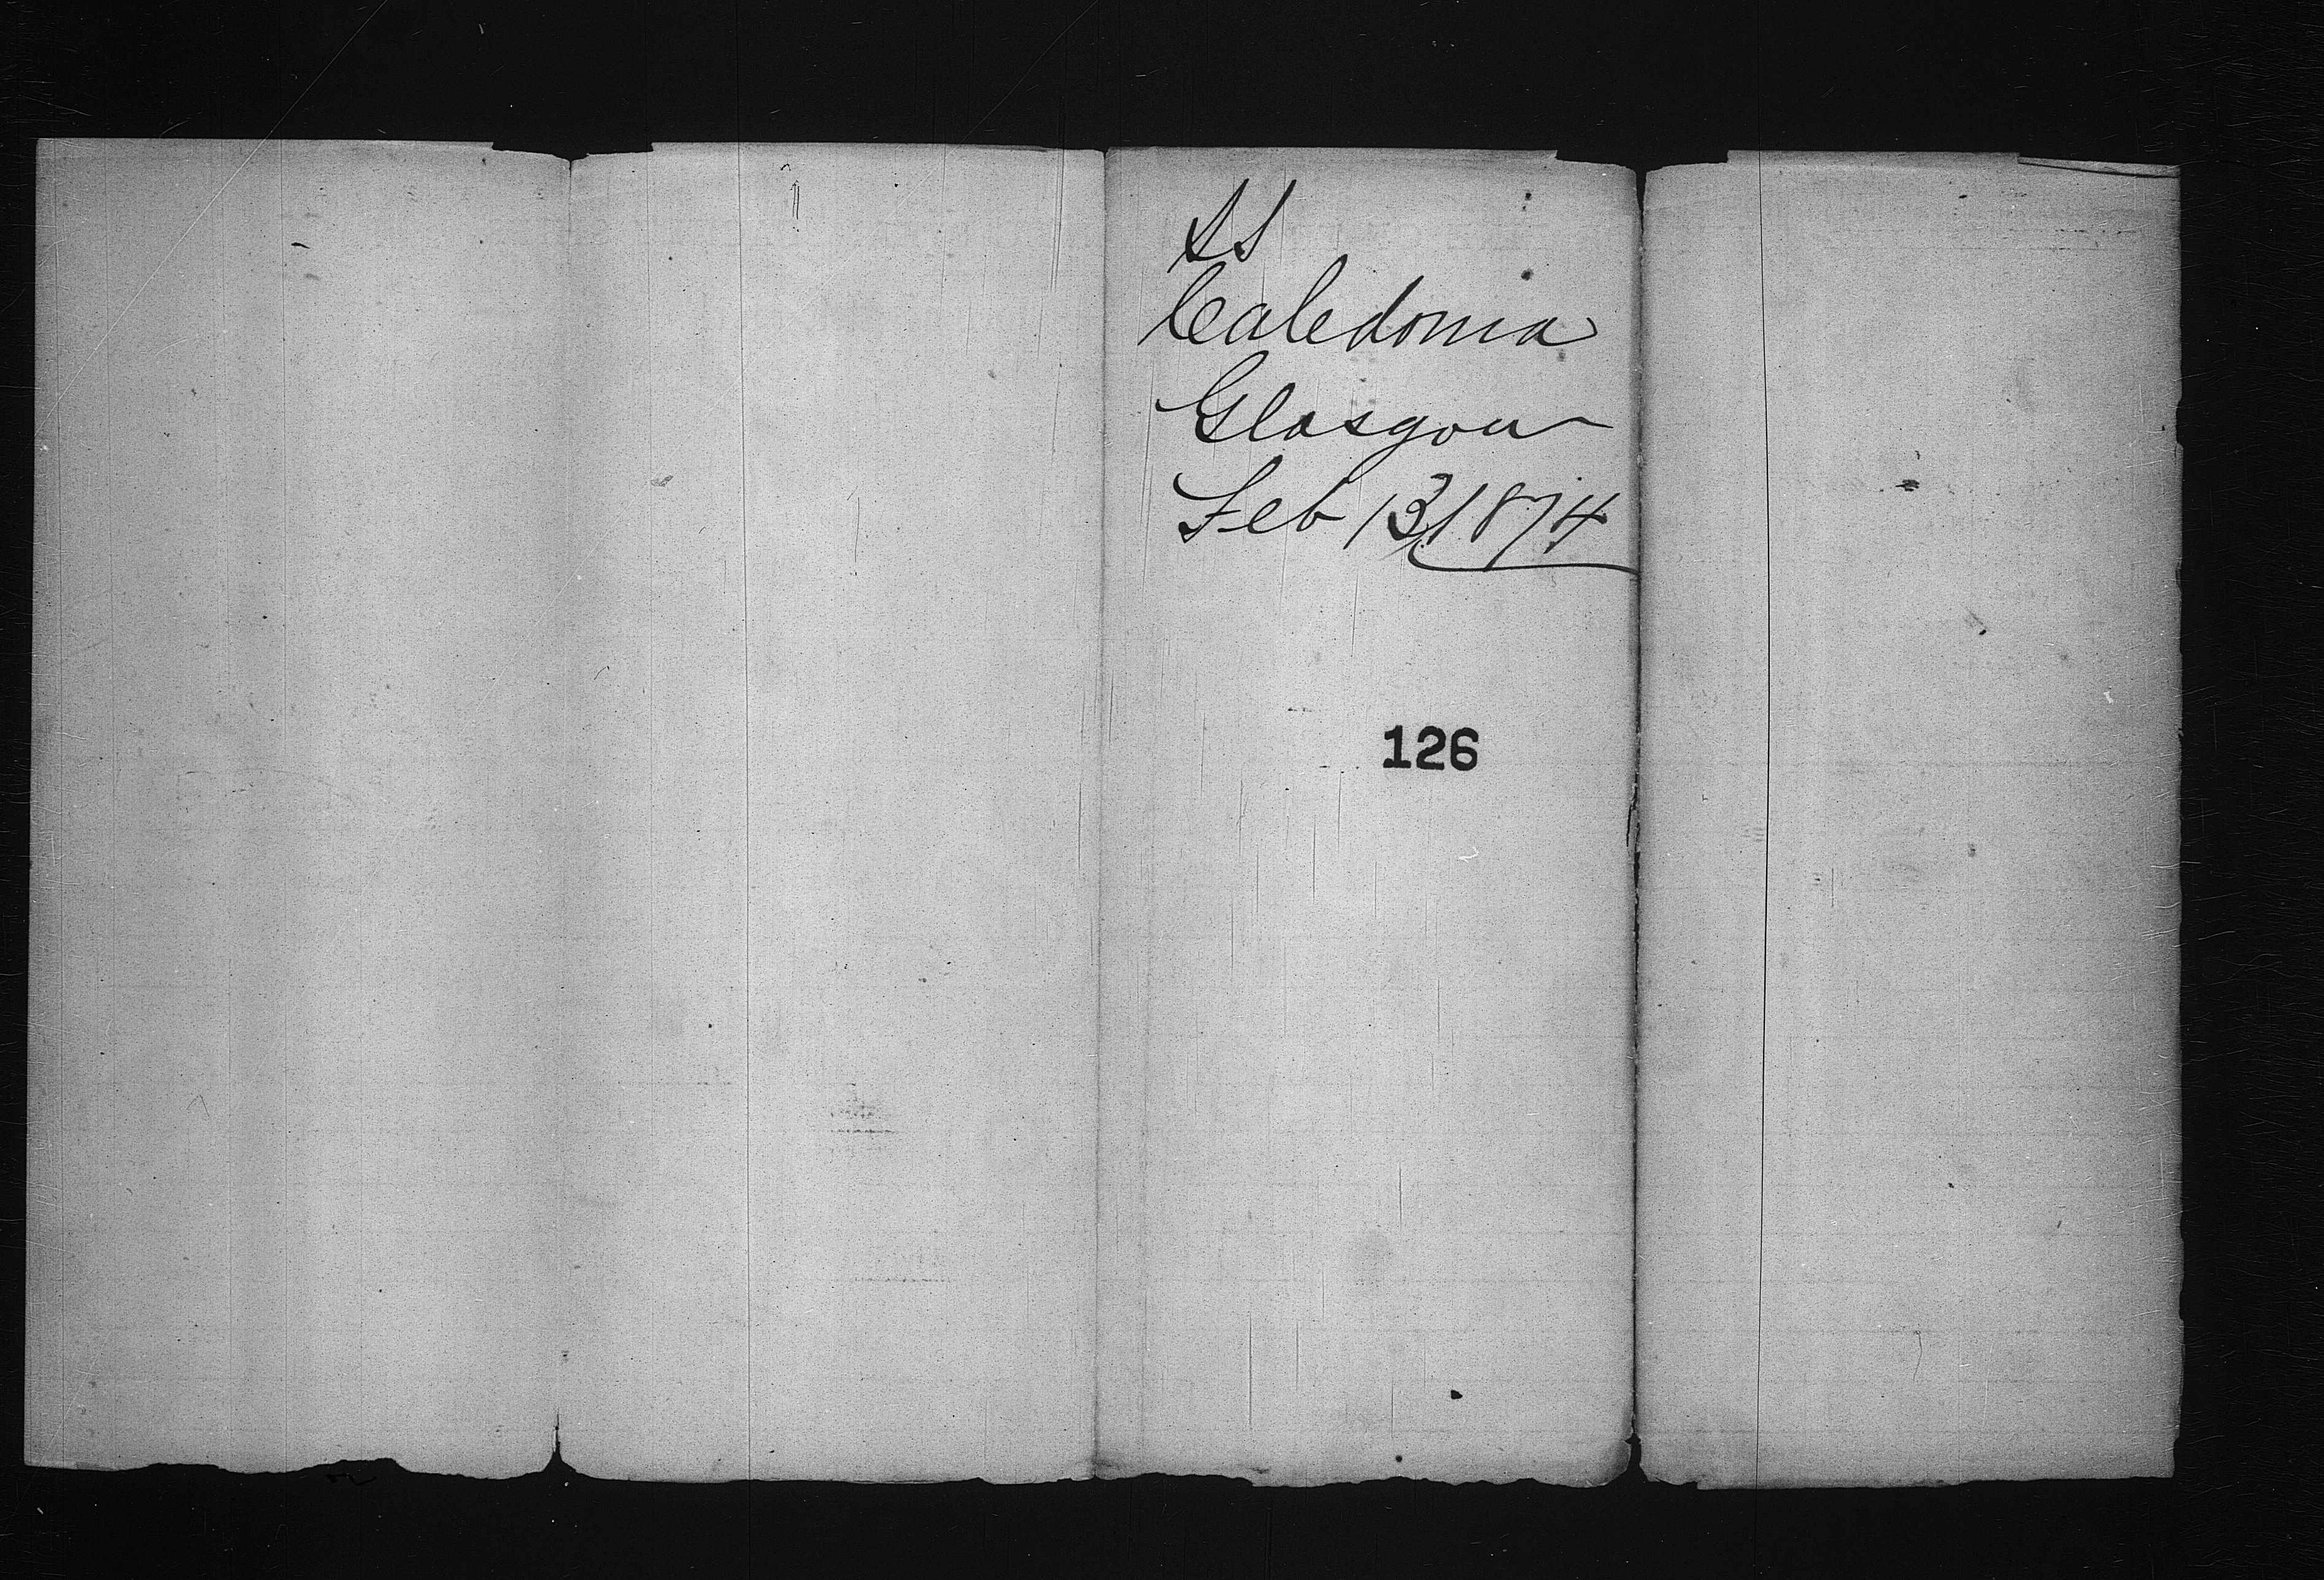 SS
Caledonia
Glasgow
Feb 13/1874
126